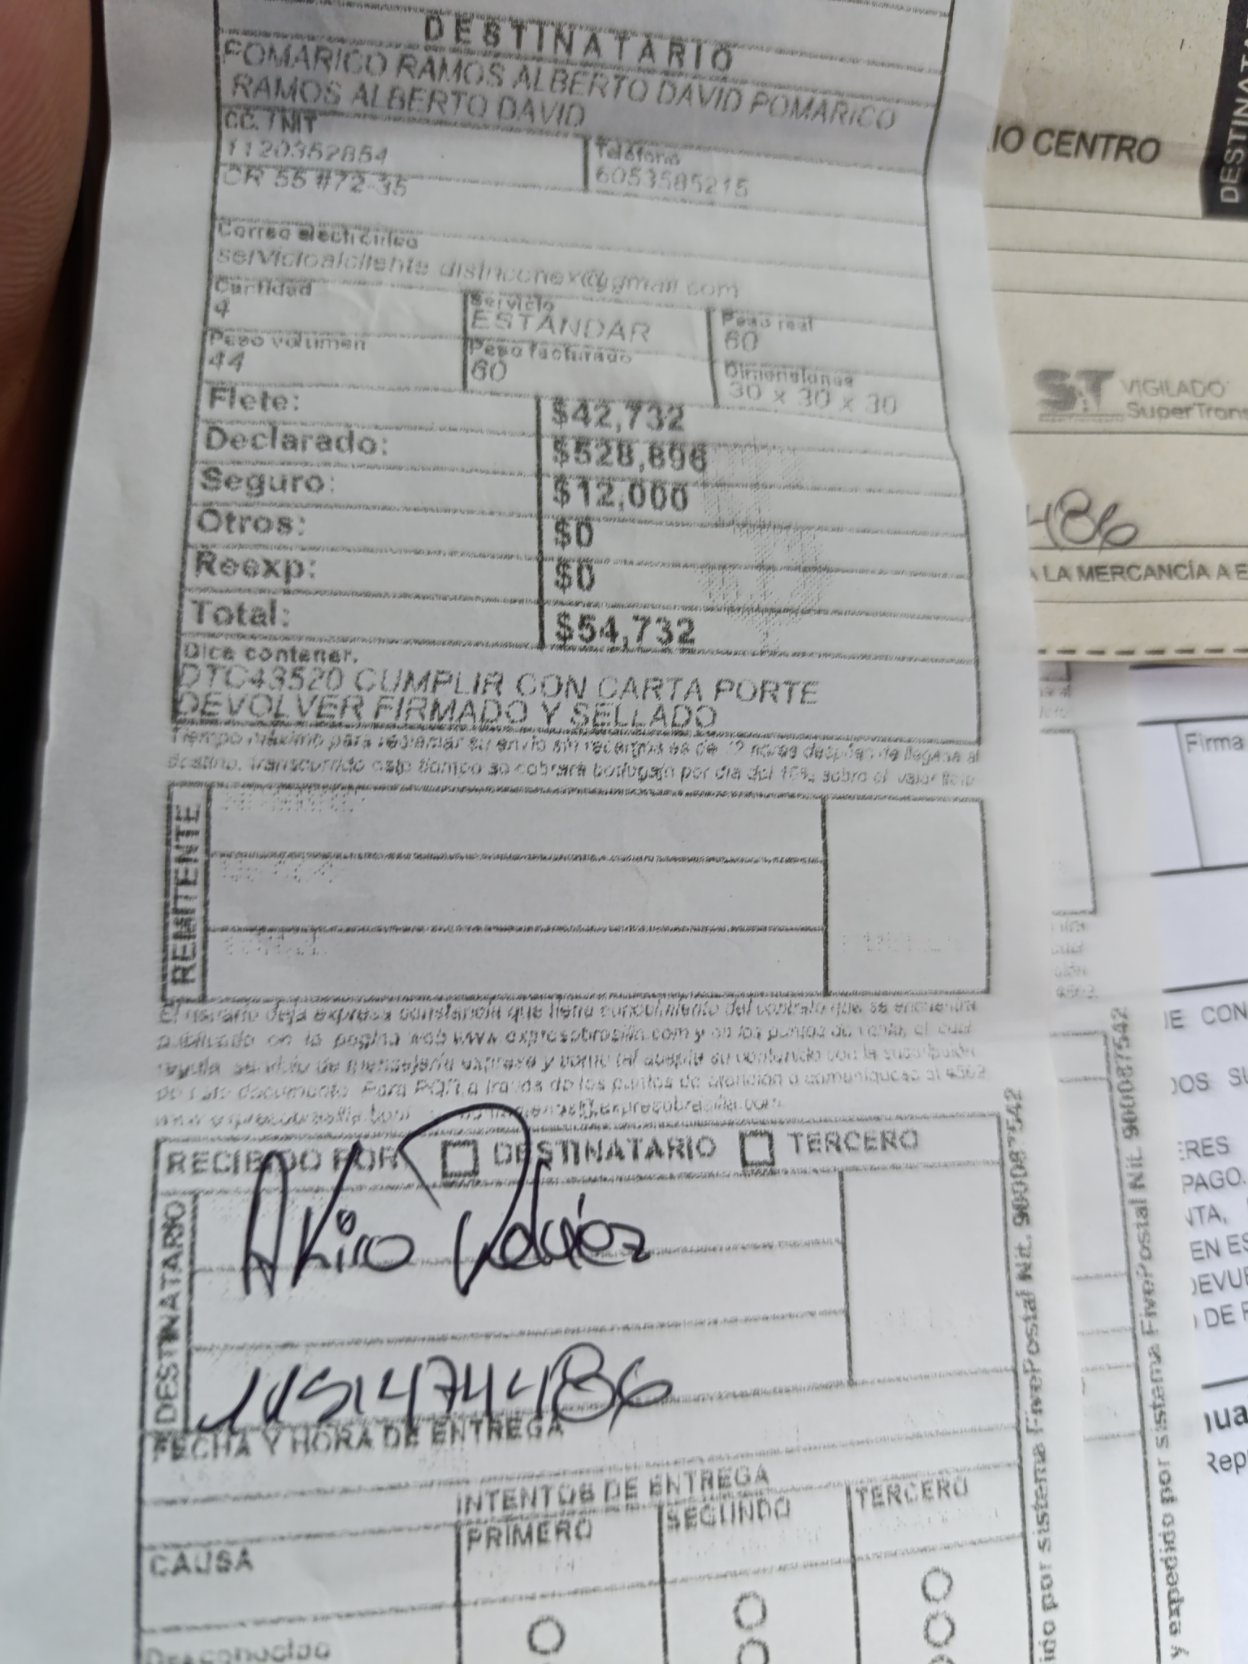 DESTINATARIO
POMARICO RAMOS ALBERTO DAVID POMARICO
RAMOS ALBERTO DAVID
CC. / NIT
1120352854
Teléfono
6053585215
CR 55 #72-35
Correo electrónico
servicioalcliente.districonex@gmail.com
Cantidad
4
Servicio
ESTÁNDAR
Peso real
60
Peso volumen
44
Peso facturado
60
Dimensiones
30 x 30 x 30
Flete: $42,732
Declarado: $528,896
Seguro: $12,000
Otros: $0
Reexp: $0
Total: $54,732
Dice contener.
DTC43520 CUMPLIR CON CARTA PORTE
DEVOLVER FIRMADO Y SELLADO
Tiempo máximo para reclamar su envío sin recargos es de 72 horas después de llegada al
destino, transcurrido este tiempo se cobrará bodegaje por día del 10% sobre el valor flete
REMITENTE
El usuario deja expresa constancia que tiene conocimiento del contrato que se encuentra
publicado en la página web www.expresobrasilia.com y en los puntos de venta, el cual
regula servicio de mensajería expresa y como tal acepta su contenido con la suscripción
de este documento. Para PQR a través de los puntos de atención o comuníquese al 4562
www.expresobrasilia.com
RECIBIDO POR DESTINATARIO TERCERO
DESTINATARIO
Akiro
1151474486
FECHA Y HORA DE ENTREGA
INTENTOS DE ENTREGA
CAUSA PRIMERO SEGUNDO TERCERO
Desconocido
ido por sistema FivePostal Nit. 900087542
y expedido por sistema FivePostal Nit. 900087542
IO CENTRO
DESTINATA
VIGILADO
SuperTrans
486
A LA MERCANCÍA A E
Firma
E CON
OS SU
ERES
PAGO.
TA,
EN ES
DEVUE
DE
Rep